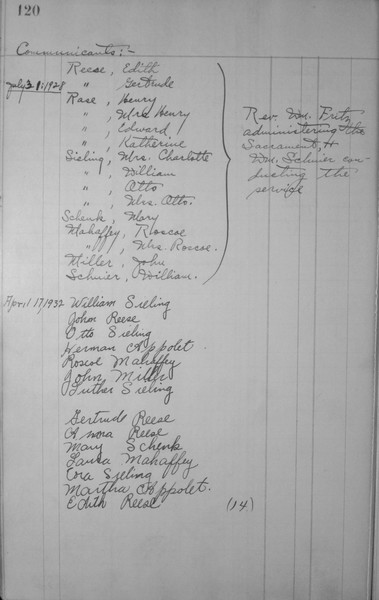 120
Communicants:-
Reese, Edith
July 31, 1928 " Gertrude
Rase, Henry
", Mrs. Henry
", Edward,
", Katherine
Sieling, Mrs. Charlotte
", William
", Otto
", Mrs. Otto.
Schenk, Mary
Mahaffey, Roscoe
", Mrs. Roscoe.
Miller, John
Schuier, William.
Rev. Wm. Fritz
administering the
Sacrament, &
Wm. Schuier con-
ducting the
service
April 17, 1932 William Sieling
John Reese
Otto Sieling
Herman Appolet.
Roscoe Mahaffey
John Miller
Luther Sieling
Gertrude Reese
Reese
Mary Schenk
Laura Mahaffey
Cora Sieling
Martha Appolet.
Edith Reese (14)